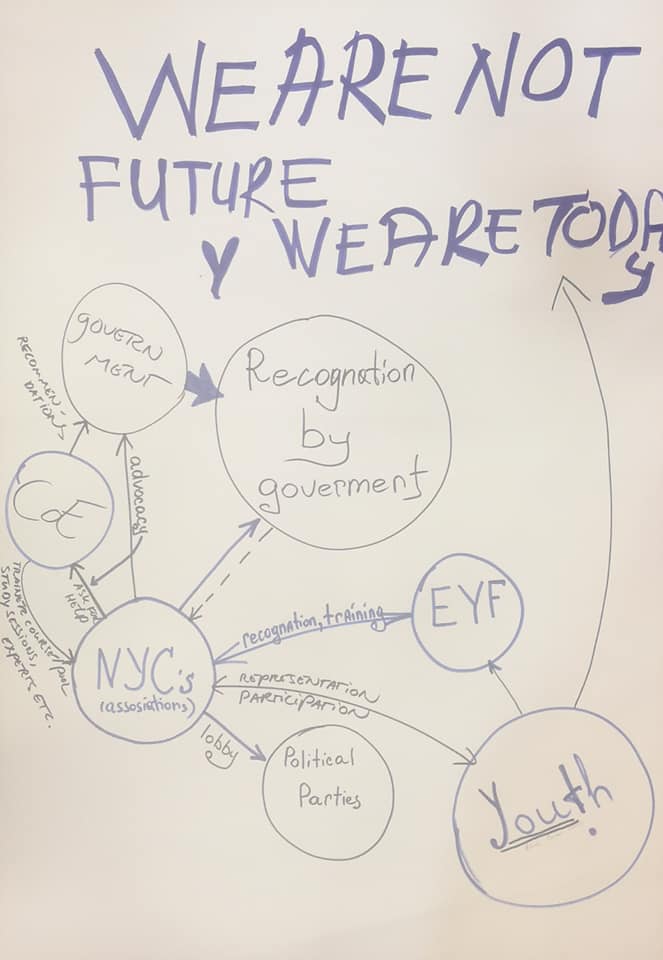 WE ARE NOT
FUTURE
Y WE ARE TODA
Y
GOVERN
MENT
Recognation
by
goverment
RECOMMEN-
DATIONS
CoE
advocacy
ASK FOR
HELP
STUDY SESSIONS,
EXPERTS ETC.
NYC's
(assosiations)
recognation, training
EYF
REPRESENTATION
PARTICIPATION
lobby
Political
Parties
Youth